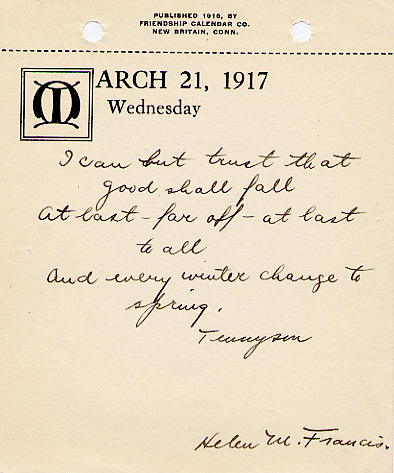 PUBLISHED 1916, BY
FRIENDSHIP CALENDAR CO.
NEW BRITAIN, CONN.
MARCH 21, 1917
Wednesday
I can but trust that
good shall fall
At last - far off - at last
to all
And every winter change to
spring.
Tennyson
Helen M. Francis.